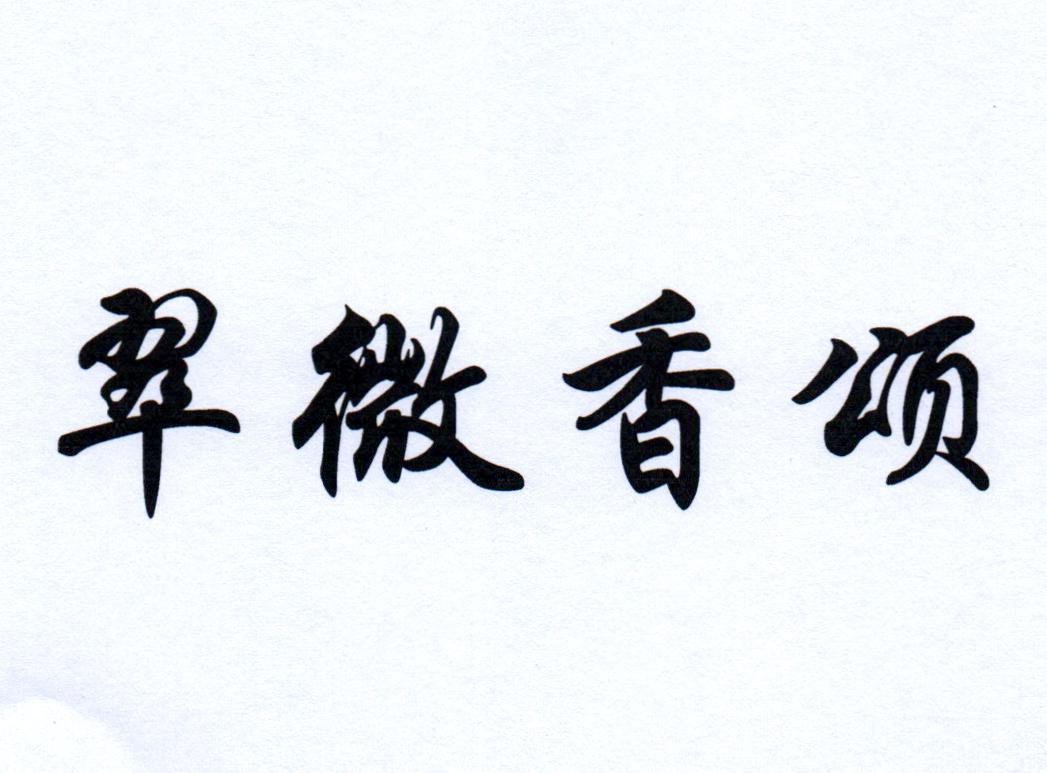 翠微香颂